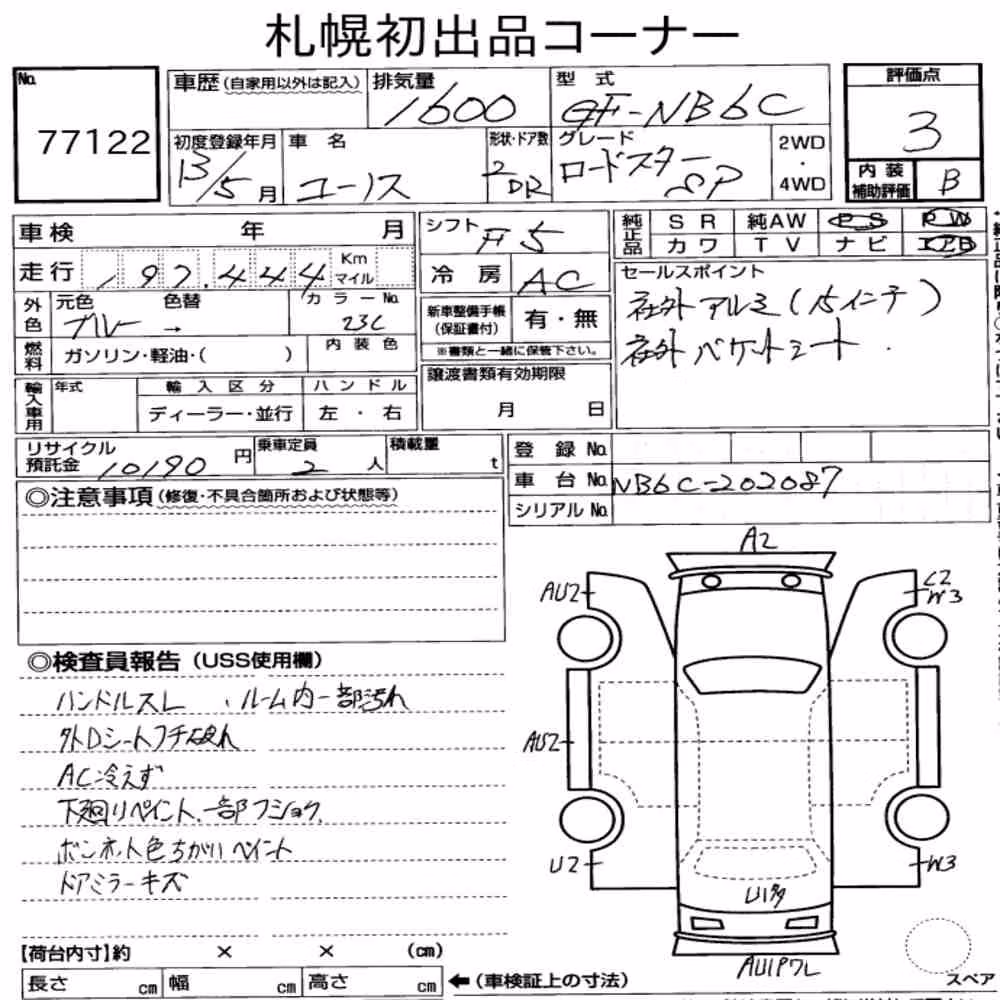 札幌初出品コーナー
No. 77122
車歴 (自家用以外は記入)
排気量 1600
型式 GF-NB6C
評価点 3
初度登録年月 13/5月
車名 ユーノス
形状・ドア数 2DR
グレード ロードスター SP
2WD・4WD
内装補助評価 B
車検 年 月
シフト F5
純正品 SR 純AW PS PW
カワ TV ナビ エアB
走行 197,444 Km マイル
冷房 AC
セールスポイント
社外アルミ(15インチ)
社外バケットシート
外色 元色 ブルー → 色替
カラーNo. 23C
新車整備手帳(保証書付) 有・無
※書類と一緒に保管下さい。
燃料 ガソリン・軽油・( )
内装色
輸入車用 年式 輸入区分 ハンドル
ディーラー・並行 左・右
譲渡書類有効期限
月 日
リサイクル預託金 10190円
乗車定員 2人
積載量 t
登録No.
車台No. NB6C-202087
シリアルNo.
◎注意事項(修復・不具合箇所および状態等)
◎検査員報告(USS使用欄)
ハンドルスレ、ルーム内一部汚れ
外Dシートフチ破れ
AC冷えず
下廻りペイント、一部フショク
ボンネット色ちがいペイント
ドアミラーキズ
A2
AU2
C2
W3
AU2
U2
W3
U1多
AU1Pワレ
スペア
【荷台内寸】約 × × (cm)
長さ cm 幅 cm 高さ cm
←(車検証上の寸法)